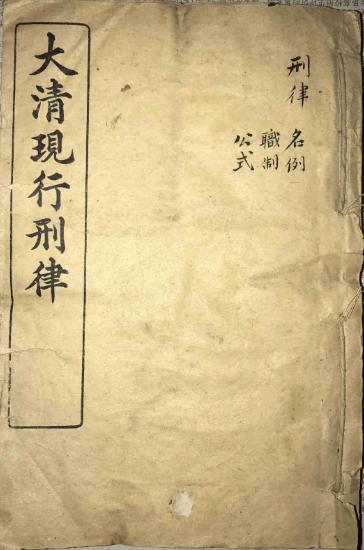 刑律 名例
職制
公式
大清現行刑律